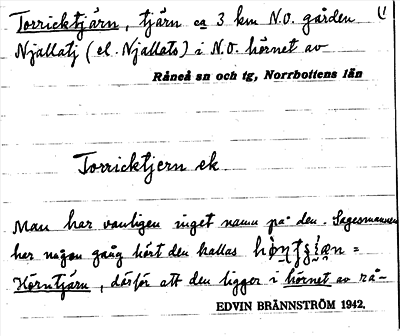 Torricktjärn, tjärn ca 3 km N.O. gården
Njallatj (el. Njallats) i N.O. hörnet av
Råneå sn och tg, Norrbottens län
Torricktjern ek.
Man har vanligen inget namn på den. Sagesmannen
har någon gång hört den kallas =
Hörntjärn, därför att den ligger i hörnet av rå-
EDVIN BRÄNNSTRÖM 1942.